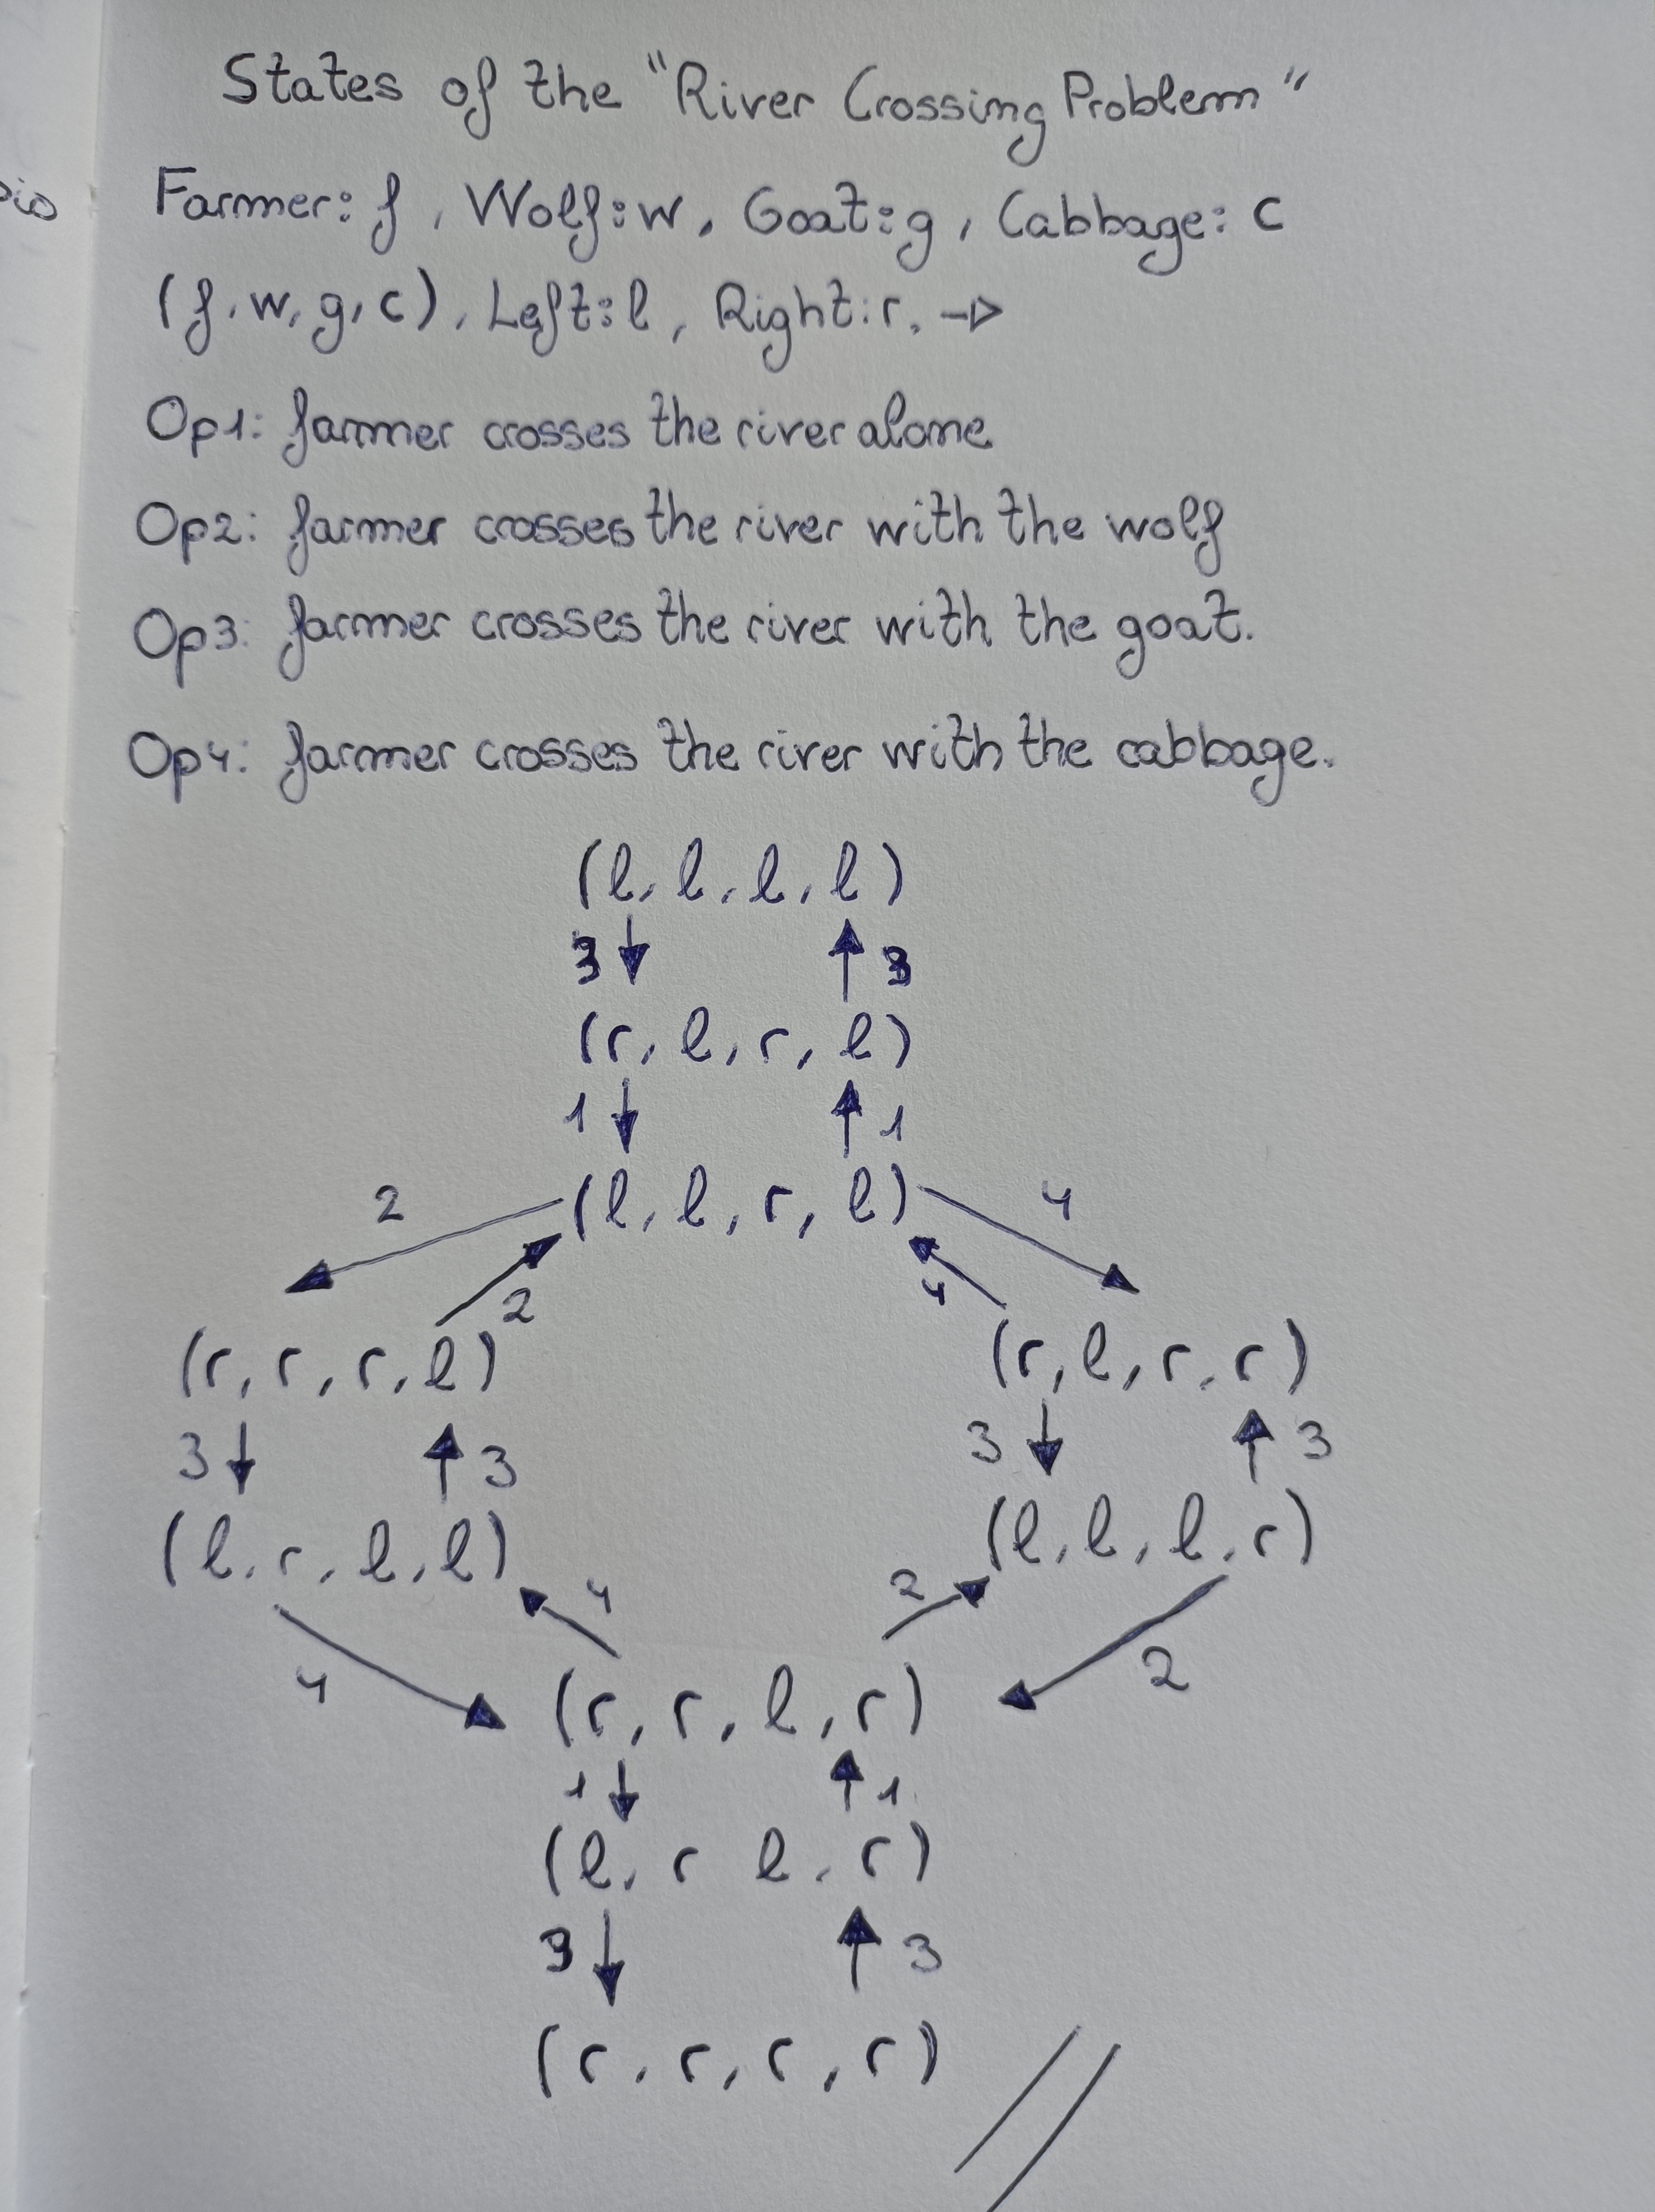 States of the "River Crossing Problem"
Farmer: f, Wolf: w, Goat: g, Cabbage: c
(f, w, g, c), Left: l, Right: r. →
Op1: farmer crosses the river alone
Op2: farmer crosses the river with the wolf
Op3: farmer crosses the river with the goat.
Op4: farmer crosses the river with the cabbage.
(l, l, l, l)
3 ↓ ↑ 3
(r, l, r, l)
1 ↓ ↑ 1
2 (l, l, r, l) 4
2 4
(r, r, r, l) (r, l, r, r)
3 ↓ ↑ 3 3 ↓ ↑ 3
(l, r, l, l) (l, l, l, r)
4 2
4 (r, r, l, r) 2
1 ↓ ↑ 1
(l, r l, r)
3 ↓ ↑ 3
(r, r, r, r)